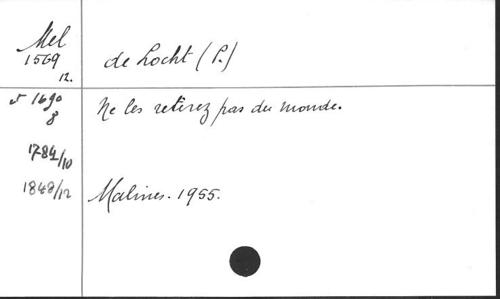 Mel
1569
12.
de Locht (P.)
1690
8
Ne les retirez pas du monde.
1784/10
1848/12
Malines. 1955.